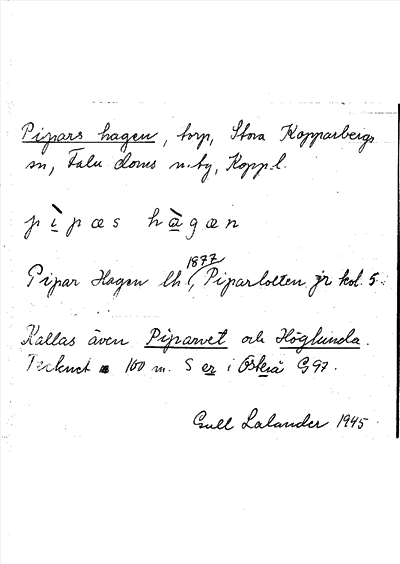 Pipars hagen, torp, Stora Kopparbergs
sn, Falu doms n-bg, Kopp.l.
p ì p æ s h à g æ n
1877
Pipar Hagen lh., Piparlotten jr kol. 5.
Kallas även Piparvet och Höglunda.
Tecknet 100 m. S er i Österå G97.
Gull Lalander 1945.